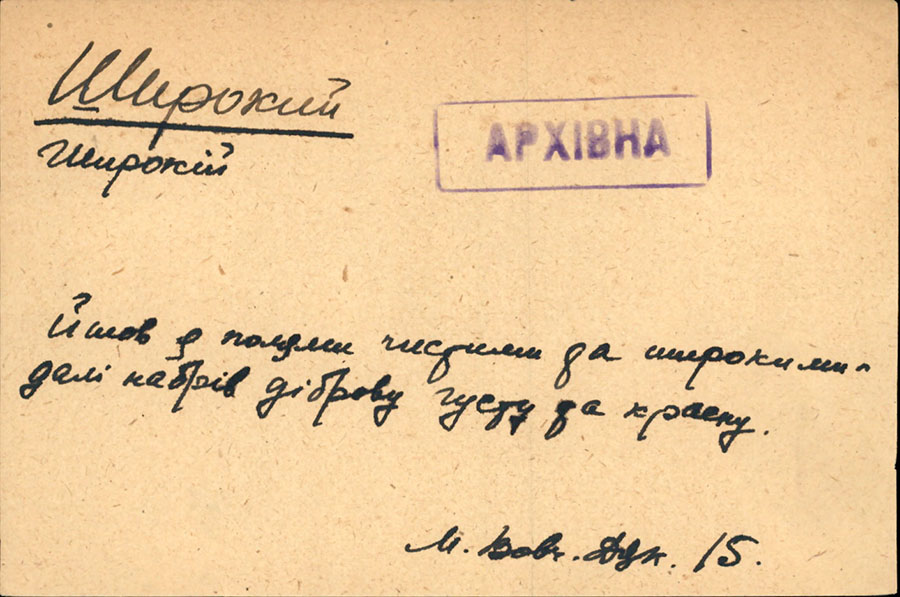 Широкий
АРХІВНА
Широкій
Йшов я полями чистими да широкими -
далі набрів діброву густу да красну.
М. Вовч. Дяк. 15.